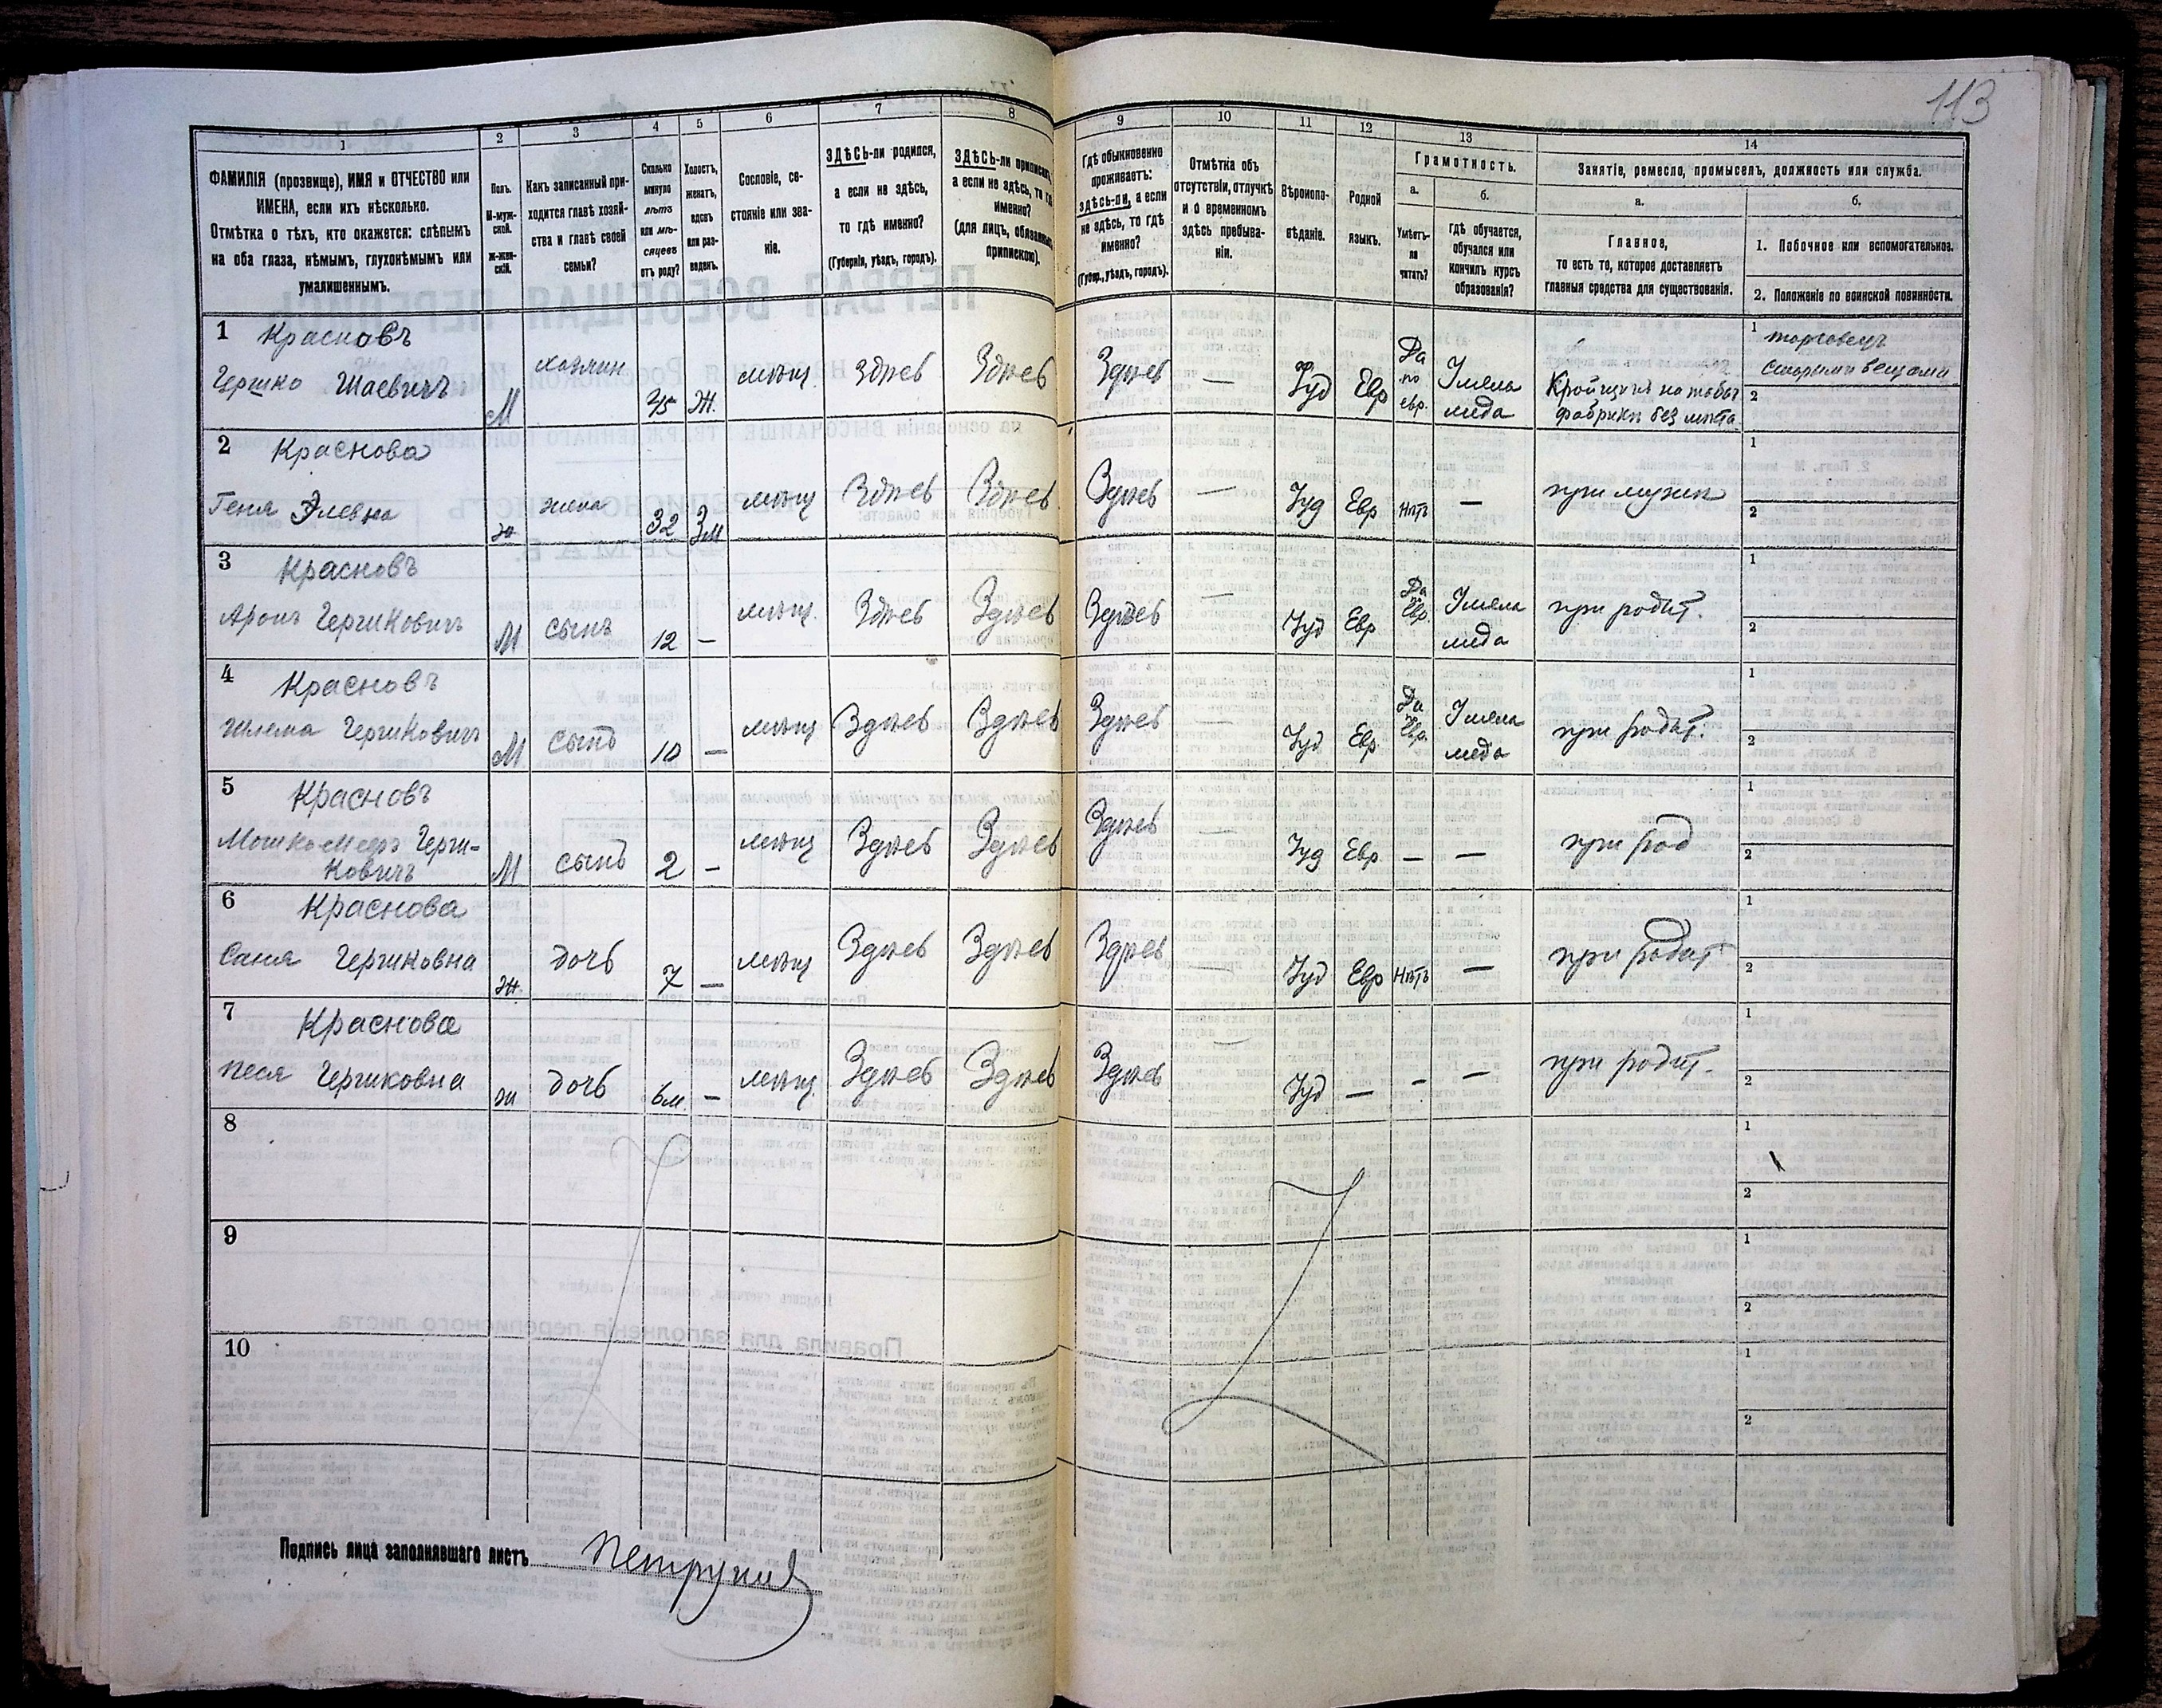 113
1
2
3
4
5
6
7
8
9
10
11
12
13
14
ФАМИЛІЯ (прозвище), ИМЯ и ОТЧЕСТВО или
ИМЕНА, если ихъ нѣсколько.
Отмѣтка о тѣхъ, кто окажется: слѣпымъ
на оба глаза, нѣмымъ, глухонѣмымъ или
умалишеннымъ.
Полъ.
М-муж-
ской.
ж-жен-
скій.
Какъ записанный при-
ходится главѣ хозяй-
ства и главѣ своей
семьи?
Сколько
минуло
лѣтъ
или мѣ-
сяцевъ
отъ роду?
Холостъ,
женатъ,
вдовъ
или раз-
веденъ.
Сословіе, со-
стояніе или зва-
ніе.
ЗДѢСЬ-ли родился,
а если не здѣсь,
то гдѣ именно?
(Губернія, уѣздъ, городъ).
ЗДѢСЬ-ли приписанъ,
а если не здѣсь, то гдѣ
именно?
(для лицъ, обязанныхъ
припискою).
Гдѣ обыкновенно
проживаетъ:
здѣсь-ли, а если
не здѣсь, то гдѣ
именно?
(Губер., уѣздъ, городъ).
Отмѣтка объ
отсутствіи, отлучкѣ
и о временномъ
здѣсь пребыва-
ніи.
Вѣроиспо-
вѣданіе.
Родной
языкъ.
Грамотность.
а.
Умѣетъ-
ли
читать?
б.
Гдѣ обучается,
обучался или
кончилъ курсъ
образованія?
Занятіе, ремесло, промыселъ, должность или служба.
а.
Главное,
то есть то, которое доставляетъ
главныя средства для существованія.
б.
1. Побочное или вспомогательное.
2. Положеніе по воинской повинности.
1 Красновъ
Гершко Шаевичъ
М
хозяин
Ж.
мѣщ.
Здѣсь
Здѣсь
Здѣсь
—
Іуд
Евр
Да
по
евр.
У мела
меда
фабрики без мѣста
1 торговецъ
старыми вещами
2
2 Краснова
Геня Элевна
ж
жена
32
Зм
мѣщ
Здѣсь
Здѣсь
Здѣсь
—
Іуд
Евр
Нѣтъ
—
при мужи
1
2
3 Красновъ
Аронъ Гершковичъ
М
сынъ
12
—
мѣщ.
Здѣсь
Здѣсь
Здѣсь
—
Іуд
Евр
Да
по
Евр.
У мела
меда
при родит.
1
2
4 Красновъ
Шлема Гершковичъ
М
сынъ
10
—
мѣщ
Здѣсь
Здѣсь
Здѣсь
—
Іуд
Евр
Да
по
Евр.
У мела
меда
при родит.
1
2
5 Красновъ
Мошко-Мееръ Герш-
ковичъ
М
сынъ
2
—
мѣщ
Здѣсь
Здѣсь
Здѣсь
—
Іуд
Евр.
—
—
при род
1
2
6 Краснова
Сагия Гершковна
ж.
дочь
7
—
мѣщ
Здѣсь
Здѣсь
Здѣсь
—
Іуд
Евр
Нѣтъ
—
при родит
1
2
7 Краснова
Песя Гершковна
ж
дочь
6м
—
мѣщ.
Здѣсь
Здѣсь
Здѣсь
—
Іуд
—
-
—
при родит.
1
2
8
1
2
9
1
2
10
1
2
Подпись лица заполнявшаго листъ